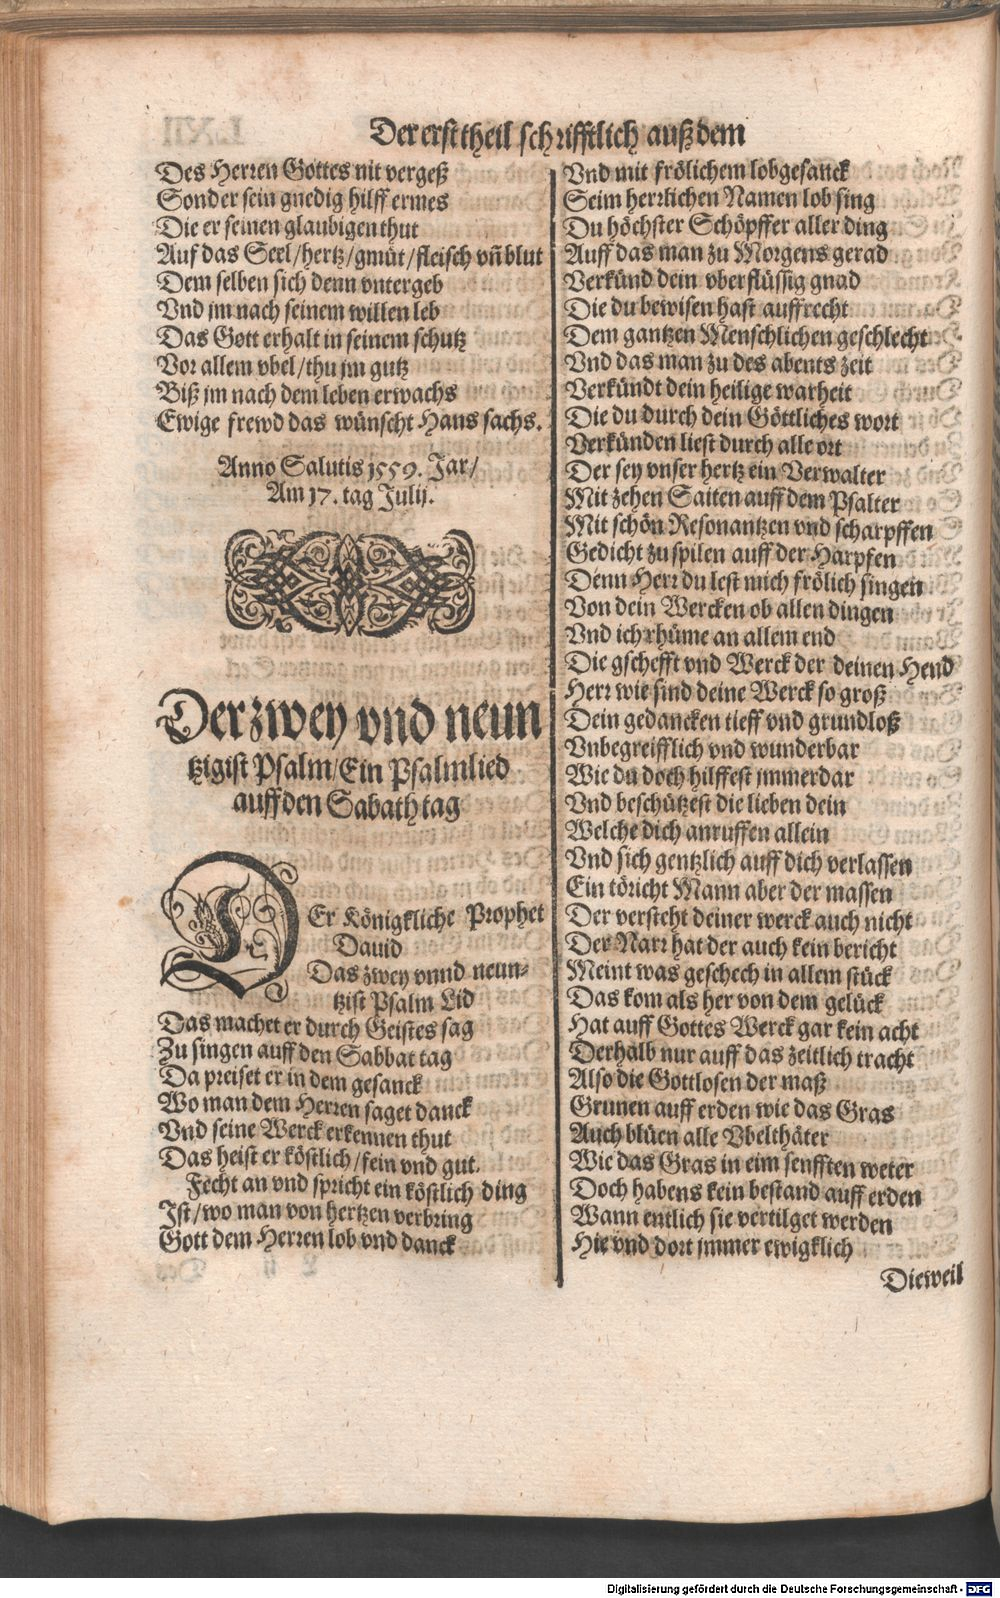 Der erst theil schrifftlich auß dem
Des Herren Gottes nit vergeß
Sonder sein gnedig hilff ermes
Die er seinen glaubigen thut
Auf das Seel/hertz/gmüt/fleisch vñ blut
Dem selben sich denn vntergeb
Vnd jm nach seinem willen leb
Das Gott erhalt in seinem schutz
Vor allem vbel/thu jm gutz
Biß jm nach dem leben erwachs
Ewige frewd das wünscht Hans sachs.
Anno Salutis 1559. Jar/
Am 17. tag Julij.
Der zwey vnd neun
tzigist Psalm/Ein Psalmlied
auff den Sabath tag
DEr Königkliche Prophet
Dauid
Das zwey vnnd neun-
tzist Psalm Lid
Das machet er durch Geistes sag
Zu singen auff den Sabbat tag
Da preiset er in dem gesanck
Wo man dem Herren saget danck
Vnd seine Werck erkennen thut
Das heist er köstlich/fein vnd gut.
Fecht an vnd spricht ein köstlich ding
Jst/wo man von hertzen verbring
Gott dem Herren lob vnd danck
Vnd mit frölichem lobgesanck
Seim herrlichen Namen lob sing
Du höchster Schöpffer aller ding
Auff das man zu Morgens gerad
Verkünd dein vberflüssig gnad
Die du bewisen hast auffrecht
Dem gantzen Menschlichen geschlecht
Vnd das man zu des abents zeit
Verkündt dein heilige warheit
Die du durch dein Göttliches wort
Verkünden liest durch alle ort
Der sey vnser hertz ein Verwalter
Mit zehen Saiten auff dem Psalter
Mit schön Resonantzen vnd scharpffen
Gedicht zu spilen auff der Harpfen
Denn Herr du lest mich frölich singen
Von dein Wercken ob allen dingen
Vnd ich rhüme an allem end
Die gschefft vnd Werck der deinen Hend
Herr wie sind deine Werck so groß
Dein gedancken tieff vnd grundloß
Vnbegreifflich vnd wunderbar
Wie du doch hilffest jmmerdar
Vnd beschützest die lieben dein
Welche dich anruffen allein
Vnd sich gentzlich auff dich verlassen
Ein töricht Mann aber der massen
Der versteht deiner werck auch nicht
Der Narr hat der auch kein bericht
Meint was geschech in allem stück
Das kom als her von dem gelück
Hat auff Gottes Werck gar kein acht
Derhalb nur auff das zeitlich tracht
Also die Gottlosen der maß
Grunen auff erden wie das Gras
Auch blüen alle Vbelthäter
Wie das Gras in eim senfften weter
Doch habens kein bestand auff erden
Wann entlich sie vertilget werden
Hie vnd dort jmmer ewigklich
Dieweil
Digitalisierung gefördert durch die Deutsche Forschungsgemeinschaft - DFG